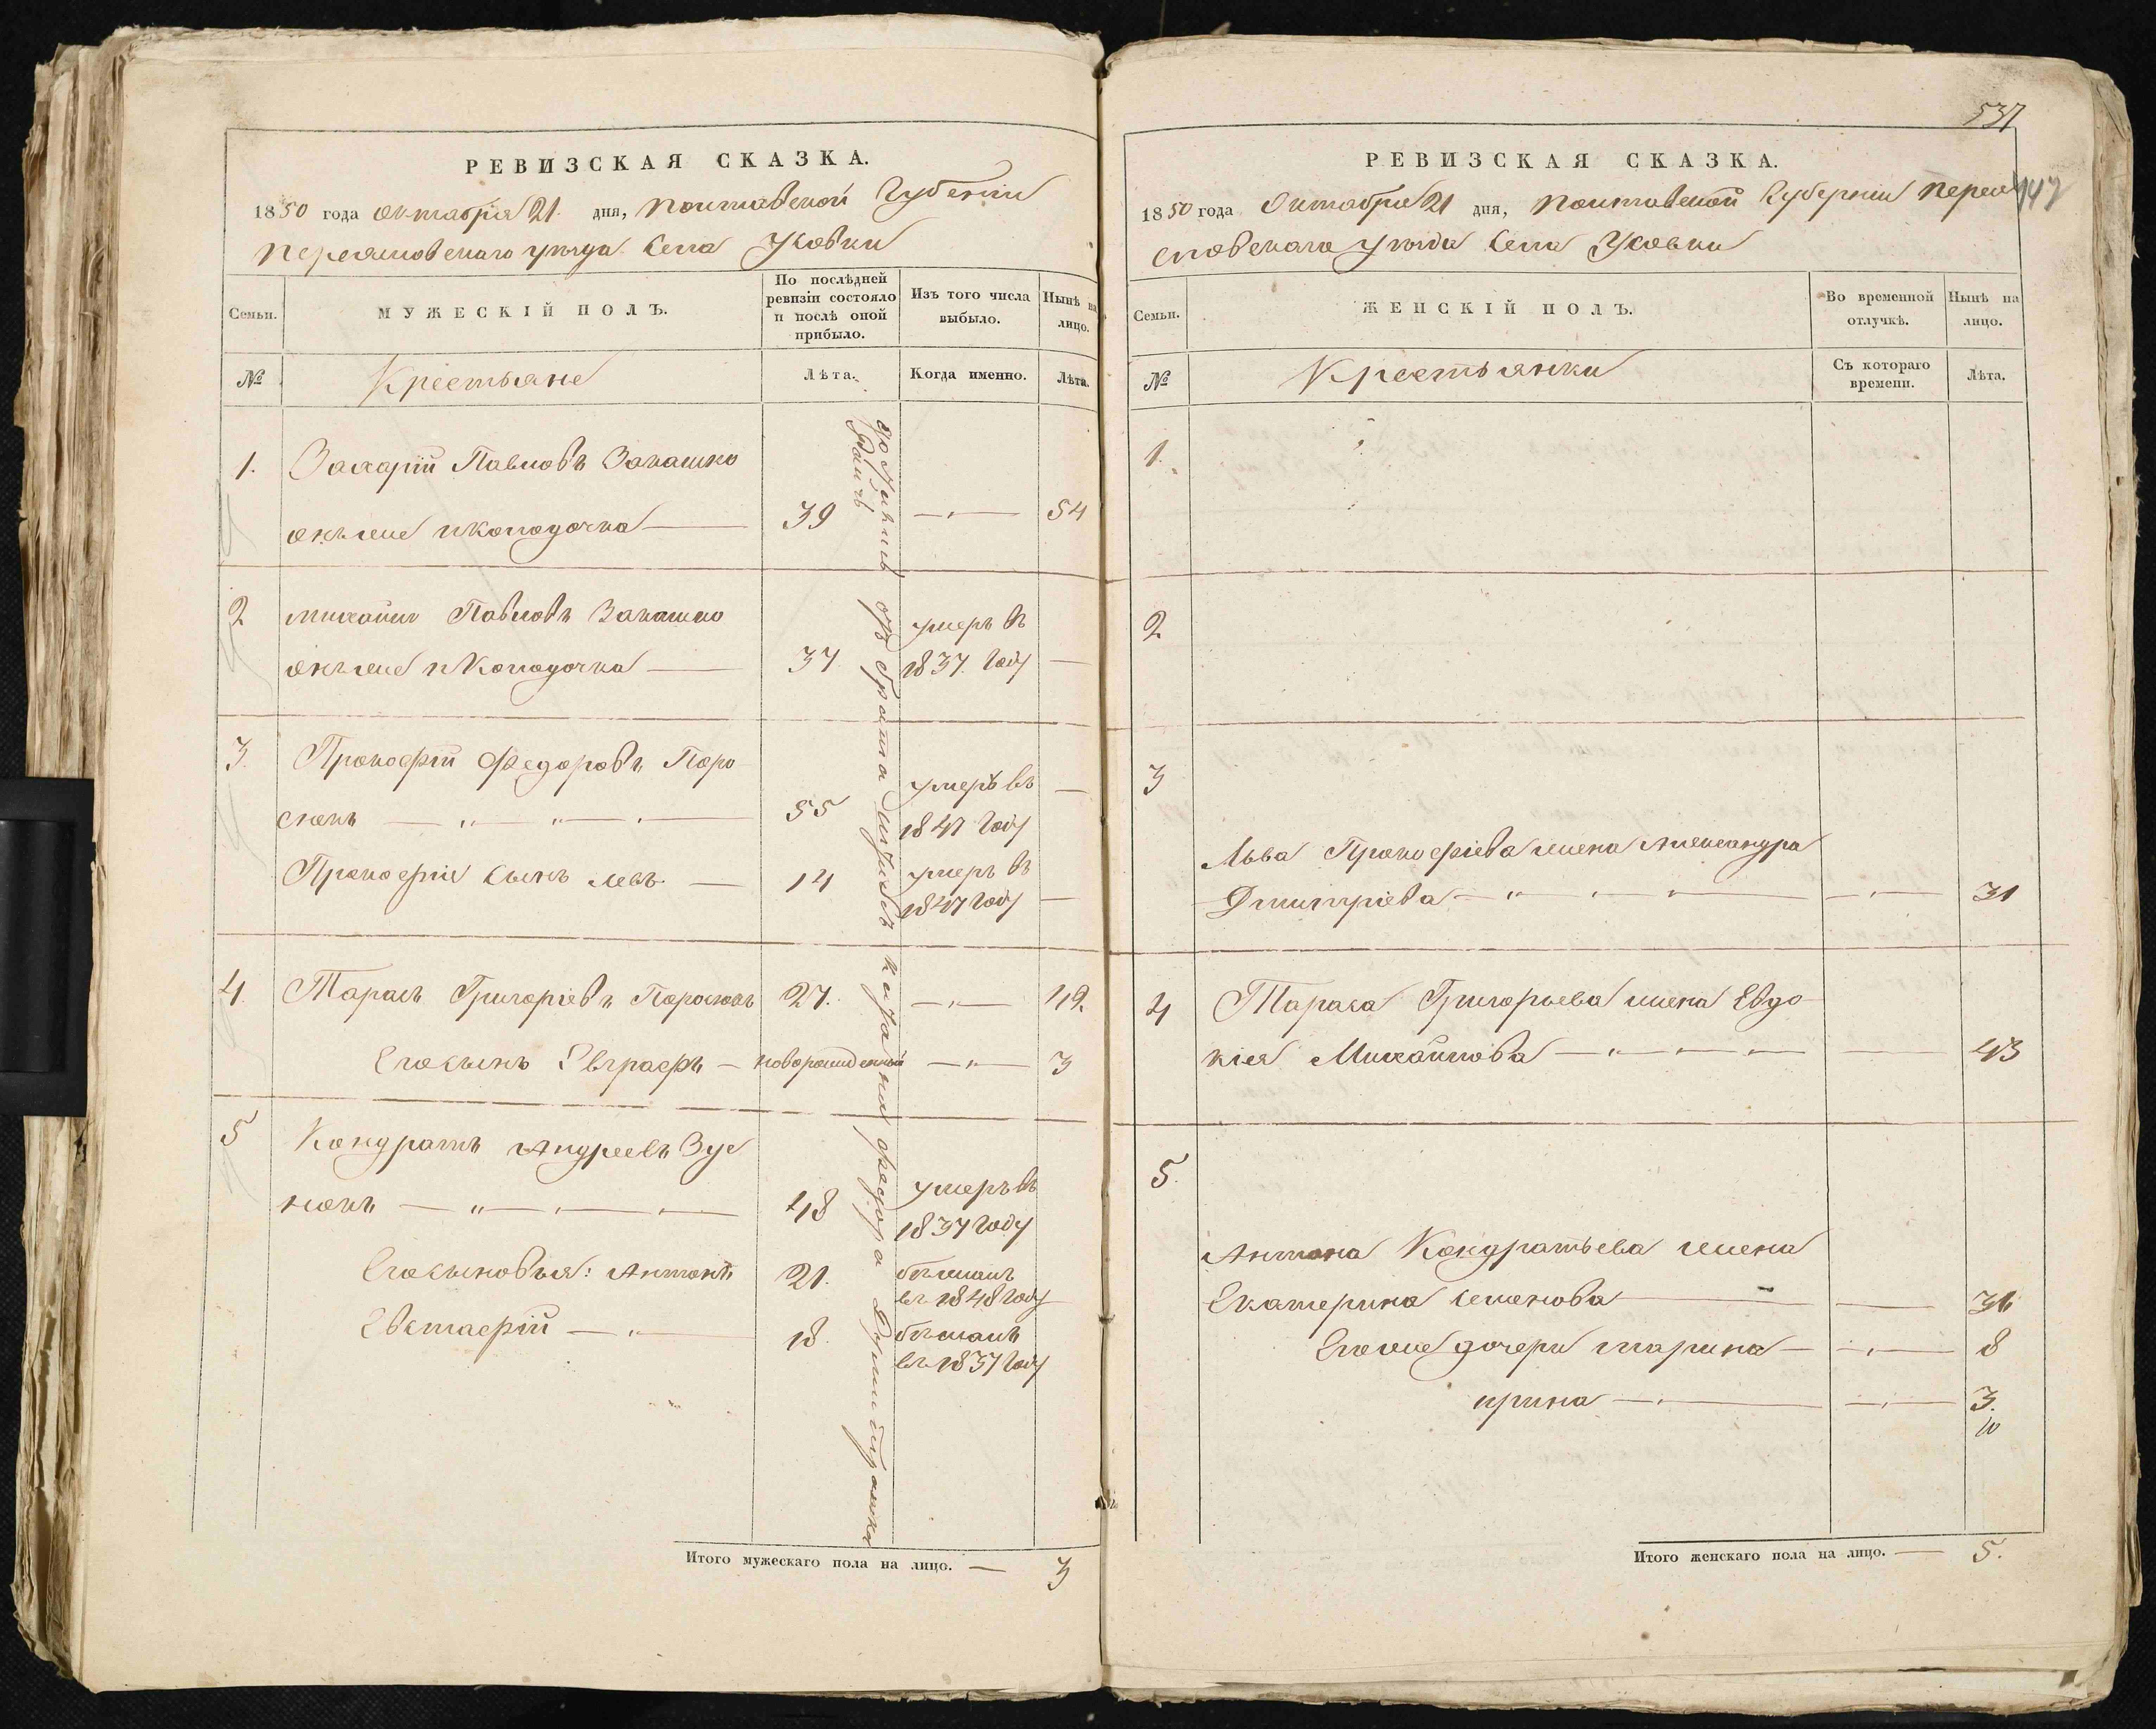 РЕВИЗСКАЯ СКАЗКА.
1850 года октабрія 21. дня, Полтавской Губеніи
Переяловскаго уезда Села Усовки
Семьи.
МУЖЕСКІЙ ПОЛЪ.
По послѣдней ревизіи состояло и послѣ оной прибыло.
Изъ того числа выбыло.
Нынѣ на лицо.
№
Крестьяне
Лѣта.
Когда именно.
Лѣта.
1. Захарій Павловъ
39 — „ — 54
2 Михайло Павловъ
умеръ въ
37 1837. Году —
3. Прокофій Федоровъ Поро
сюкъ — „ — „ — 55 умеръ въ 1847 Году —
Прокофіе сынъ Левъ — 14 умеръ въ 1847 Году —
4. Тарасъ Григоріевъ Поросюкъ 27. — „ — 42.
Егосынъ Евграфъ — новорожденный — „ — 3
5 Кондратъ Андреевъ Зуе
нокъ — „ — 48 умеръ въ 1837 Году
Егосыновья: Антонъ 21. бежалъ въ 1848 Году
Евстафій — „ — 18. бежалъ въ 1837 Году
брата Федора
Итого мужескаго пола на лицо. — 3
537
РЕВИЗСКАЯ СКАЗКА.
1850 года Октабрія 21 дня, Полтавской Губерніи Переа
словскаго Уезда Села Усовки
Семьи.
ЖЕНСКІЙ ПОЛЪ.
Во временной отлучкѣ.
Нынѣ на лицо.
№
Крестьянки
Съ котораго времени.
Лѣта.
1.
2
3
Льва Прокофіева жена Александра
Дмитріева — „ — — „ — 31
4 Тараса Григорьева жена Евдо
кія Михайлова — „ — — 43
5.
Антона Кондратьева жена
Екатерина Семенова — —
дочери Марина — — „ — 8
ирина — „ — — „ — 3.
Итого женскаго пола на лицо. — 5.